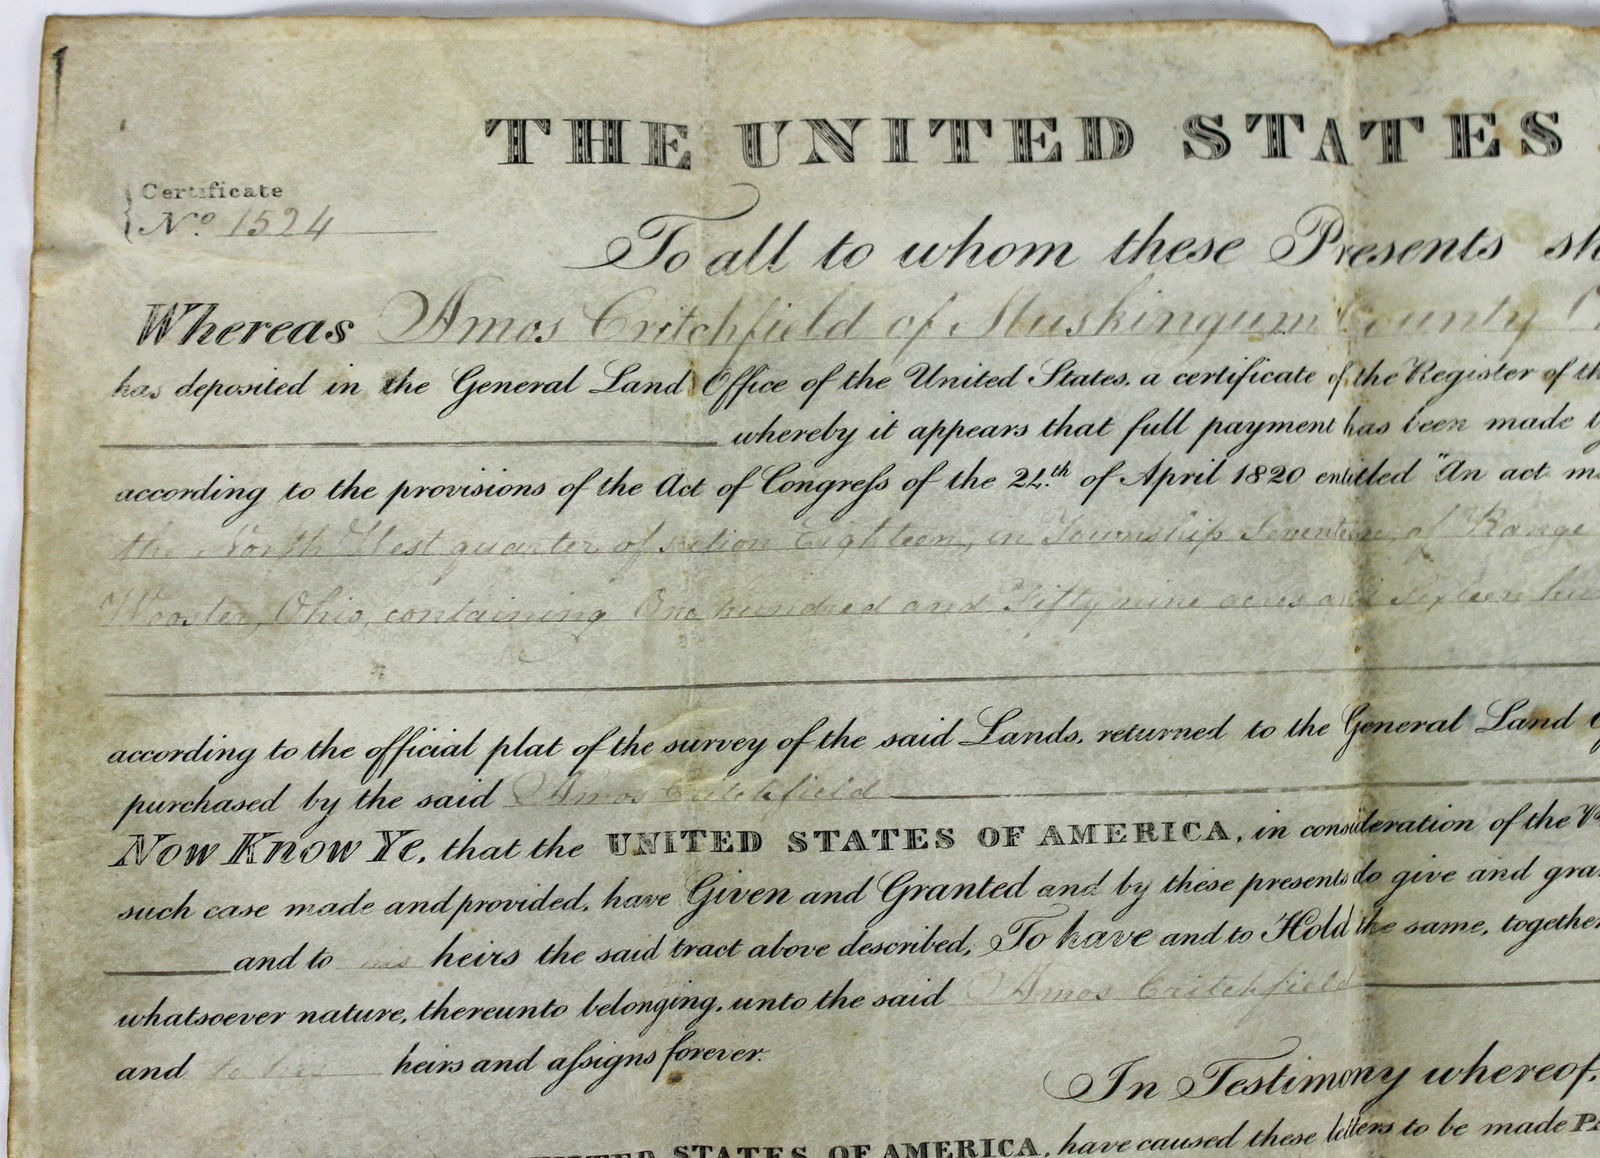 THE UNITED STATES
Certificate
No. 1524
To all to whom these Presents sh
Whereas Amos Critchfield of Muskingum County
has deposited in the General Land Office of the United States, a certificate of the Register of th
whereby it appears that full payment has been made b
according to the provisions of the Act of Congreſs of the 24.th of April 1820 entitled "An act m
the North West quarter of section Eighteen, in Township Seventeen, of Range
Wooster, Ohio, containing One hundred and Fifty nine acres and sixteen hu
according to the official plat of the survey of the said Lands, returned to the General Land
purchased by the said Amos Critchfield
Now Know Ye, that the UNITED STATES OF AMERICA, in consideration of the
such case made and provided, have Given and Granted and by these presents do give and gra
and to his heirs the said tract above described, To have and to Hold the same, together
whatsoever nature, thereunto belonging, unto the said Amos Critchfield
and to his heirs and aſsigns forever.
In Testimony whereof,
STATES OF AMERICA, have caused these letters to be made